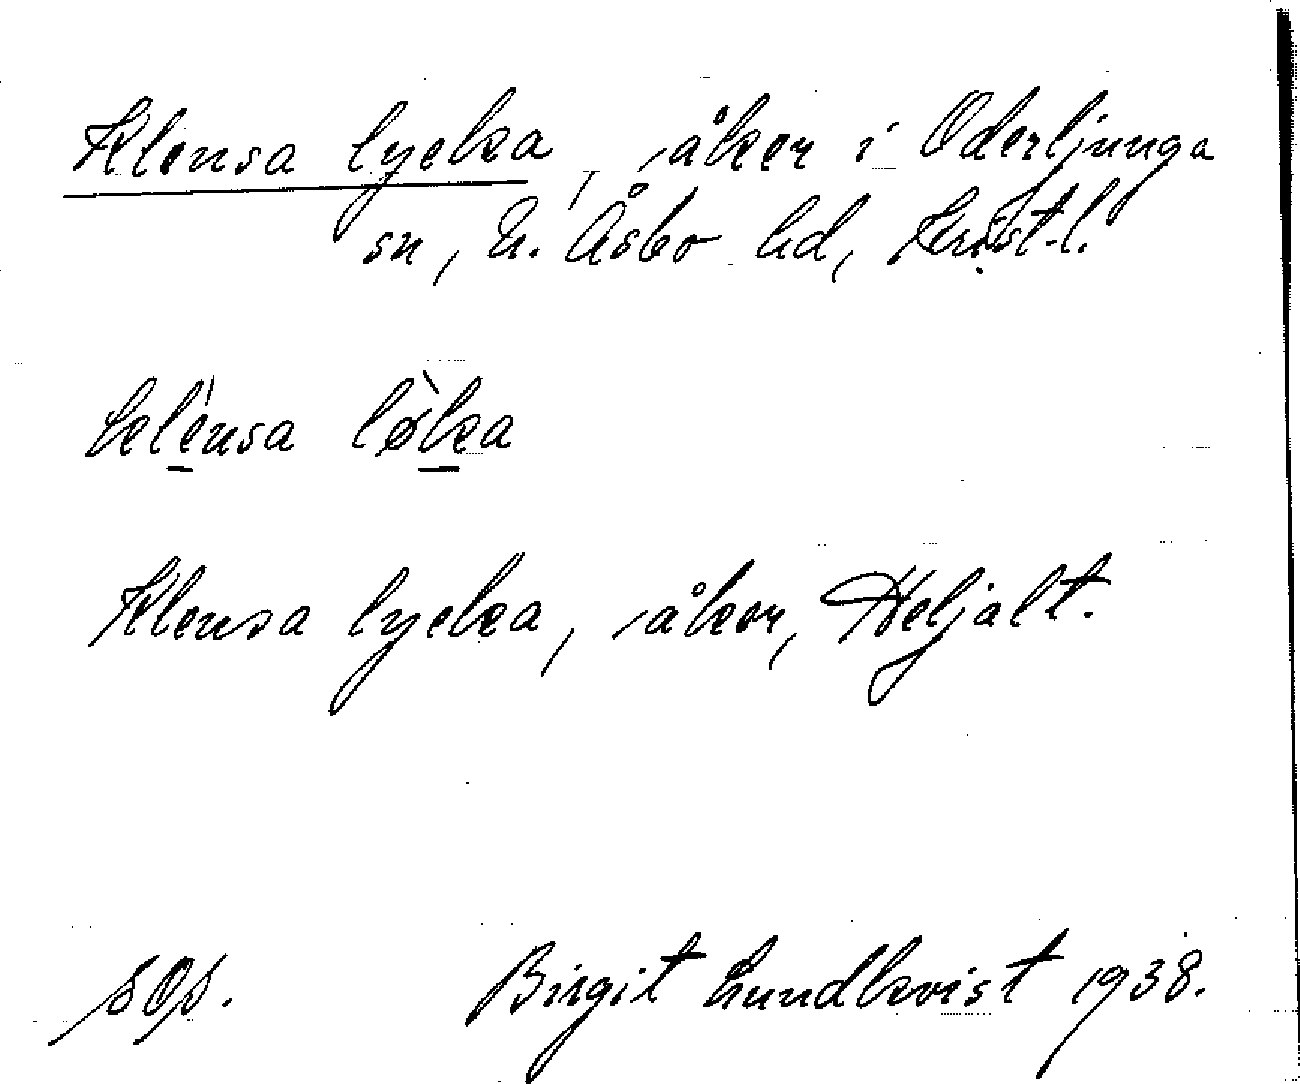 Klensa lycka, åker i Oderljunga
sn, N. Åsbo hd, Krist-l.
klènsa lø̀ka
Klensa lycka, åker, Heljalt.
SOS. Birgit Lundkvist 1938.